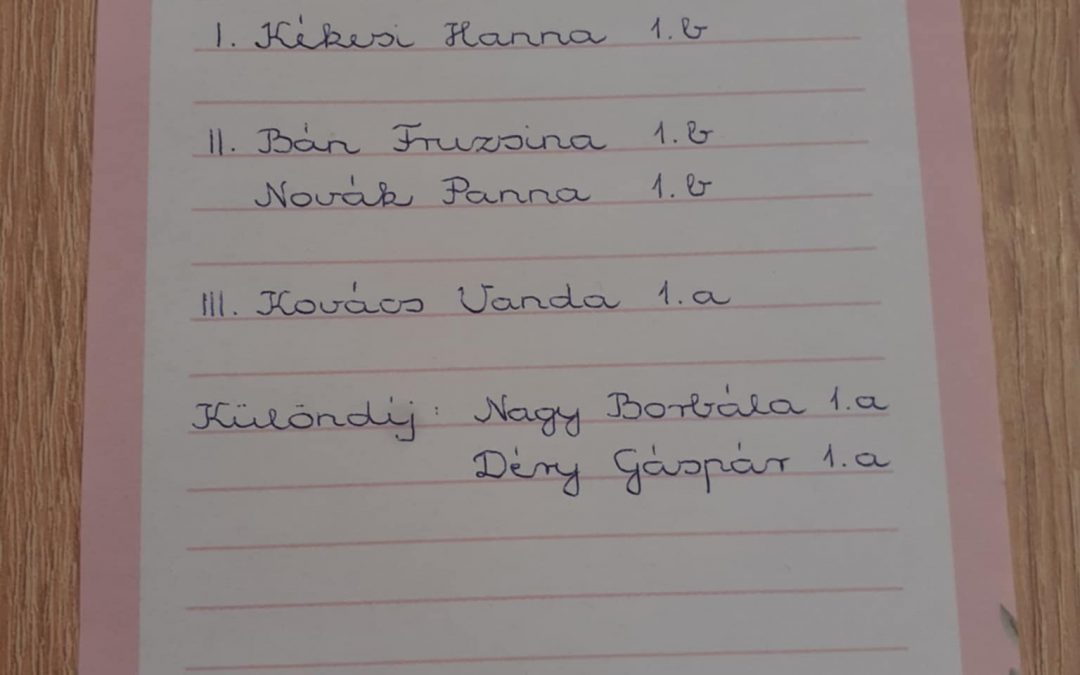 I. Kékesi Hanna 1.b
II. Bán Fruzsina 1.b
Novák Panna 1.b
III. Kovács Vanda 1.a
Különdíj: Nagy Borbála 1.a
Déry Gáspár 1.a